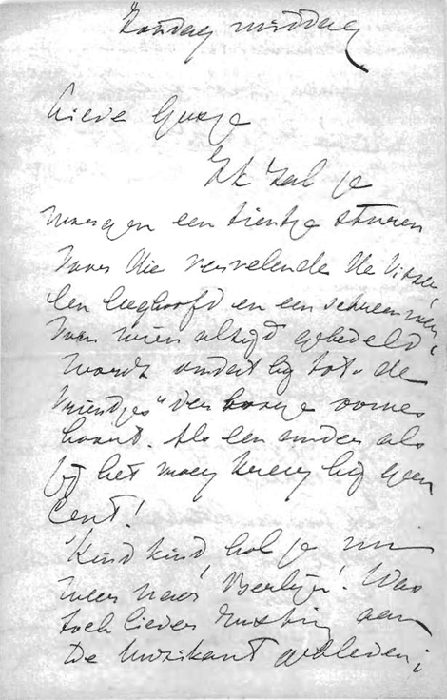 Zondag middag
Lieve Guusje
Ik zal je
morgen een tientje sturen
voor die vervelende de Visser
een leeghoofd en een schreeuwer
voor wien altijd gebedeld
wordt omdat hij tot "de
vriendjes" der hooge oomes
hoort. Als een ander als
jij het moest kreeg hij geen
Cent!
Kind kind, hol je nu
weer naar Berlijn! Was
toch liever rustig aan
De Muzikant gebleven;